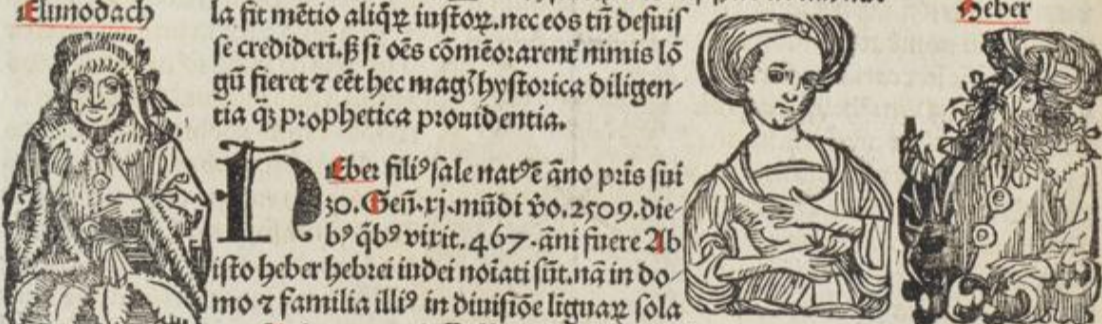 Elmodach
Heber
la fit mẽtio aliqꝝ iustoꝝ. nec eos tñ defuis
se crediderĩ. ßsi oẽs cõmẽorarentᷣ nimis lõ
gũ fieret ⁊ eẽt hec magꝭ hystorica diligen-
tia q̃ꝫ prophetica prouidentia.
HEber filiꝰ sale natꝰ ẽ ãno pris sui
30. Geñ. xj. mũdi ṽo. 2509. die-
bꝰ qͥbꝰ vixit. 467. ãni fuere Ab
isto heber hebrei iudei noĩati sũt. nã in do
mo ⁊ familia illiꝰ in diuisiõe linguaꝝ sola